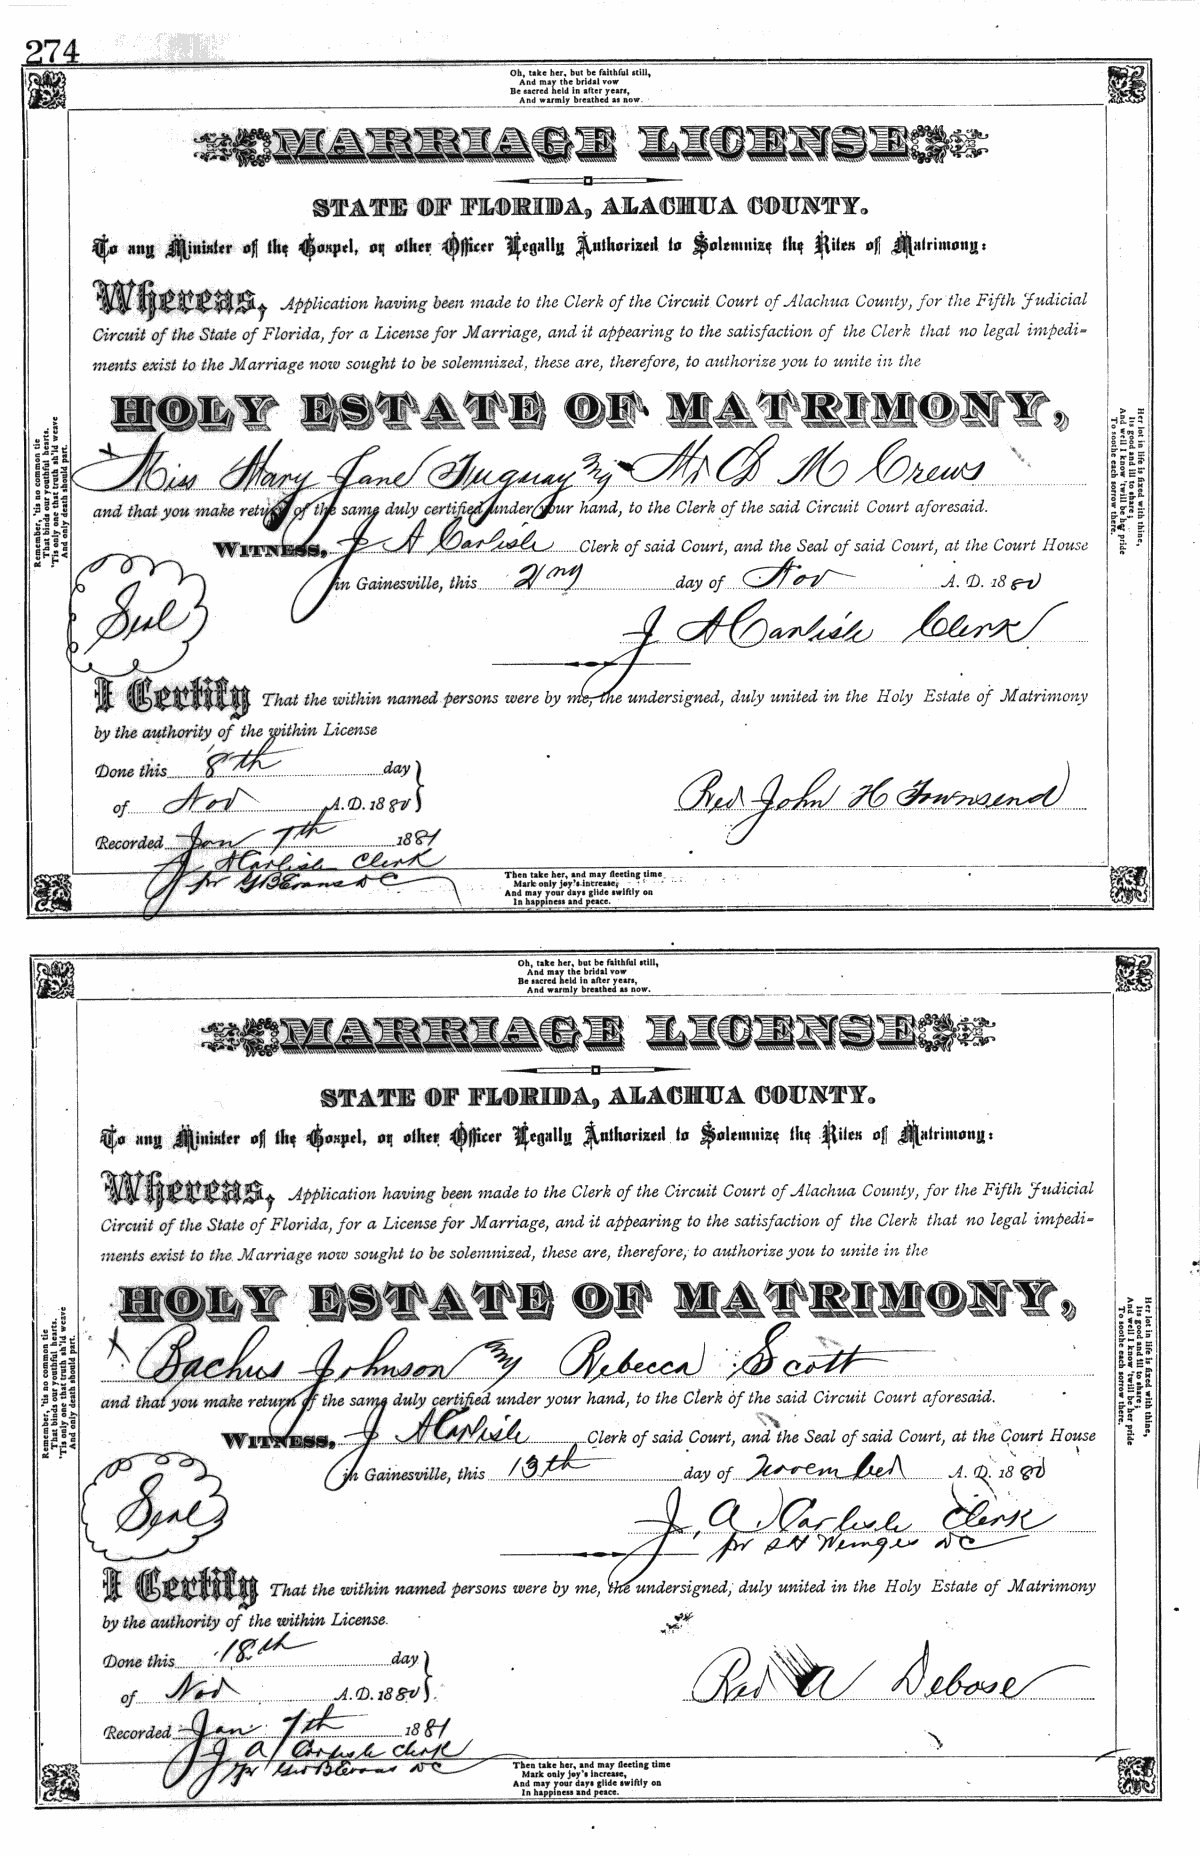 274
Oh, take her, but be faithful still,
And may the bridal vow
Be sacred held in after years,
And warmly breathed as now.
MARRIAGE LICENSE
STATE OF FLORIDA, ALACHUA COUNTY.
To any Minister of the Gospel, or other Officer Legally Authorized to Solemnize the Rites of Matrimony:
Whereas, Application having been made to the Clerk of the Circuit Court of Alachua County, for the Fifth Judicial
Circuit of the State of Florida, for a License for Marriage, and it appearing to the satisfaction of the Clerk that no legal impedi-
ments exist to the Marriage now sought to be solemnized, these are, therefore, to authorize you to unite in the
HOLY ESTATE OF MATRIMONY,
x Miss Mary Jane Fuguay Mr D M Crews
and that you make return of the same duly certified under your hand, to the Clerk of the said Circuit Court aforesaid.
WITNESS, J A Carlisle Clerk of said Court, and the Seal of said Court, at the Court House
in Gainesville, this day of Nov A. D. 1880
Seal
J A Carlisle Clerk
I Certify That the within named persons were by me, the undersigned, duly united in the Holy Estate of Matrimony
by the authority of the within License
Done this 8th day
of Nov A. D. 1880
Rev John H Townsend
Recorded Jan 7th 1881
J A Carlisle Clerk
pr G B Evans D C
Remember, 'tis no common tie
That binds our youthful hearts.
'Tis only one that truth sh'ld weave
And only death should part.
Her lot in life is fixed with thine,
Its good and ill to share;
And well I know 'twill be her pride
To soothe each sorrow there.
Then take her, and may fleeting time
Mark only joy's increase;
And may your days glide swiftly on
In happiness and peace.
Oh, take her, but be faithful still,
And may the bridal vow
Be sacred held in after years,
And warmly breathed as now.
MARRIAGE LICENSE
STATE OF FLORIDA, ALACHUA COUNTY.
To any Minister of the Gospel, or other Officer Legally Authorized to Solemnize the Rites of Matrimony:
Whereas, Application having been made to the Clerk of the Circuit Court of Alachua County, for the Fifth Judicial
Circuit of the State of Florida, for a License for Marriage, and it appearing to the satisfaction of the Clerk that no legal impedi-
ments exist to the Marriage now sought to be solemnized, these are, therefore, to authorize you to unite in the
HOLY ESTATE OF MATRIMONY,
x Bachus Johnson Rebecca Scott
and that you make return of the same duly certified under your hand, to the Clerk of the said Circuit Court aforesaid.
WITNESS, J A Carlisle Clerk of said Court, and the Seal of said Court, at the Court House
in Gainesville, this 13th day of November A. D. 1880
Seal
J. A. Carlisle Clerk
pr S H D C
I Certify That the within named persons were by me, the undersigned, duly united in the Holy Estate of Matrimony
by the authority of the within License.
Done this 18th day
of Nov A. D. 1880
Rev A Debose
Recorded Jan 7th 1881
J A Carlisle Clerk
pr Geo B Evans D C
Remember, 'tis no common tie
That binds our youthful hearts.
'Tis only one that truth sh'ld weave
And only death should part.
Her lot in life is fixed with thine,
Its good and ill to share;
And well I know 'twill be her pride
To soothe each sorrow there.
Then take her, and may fleeting time
Mark only joy's increase,
And may your days glide swiftly on
In happiness and peace.